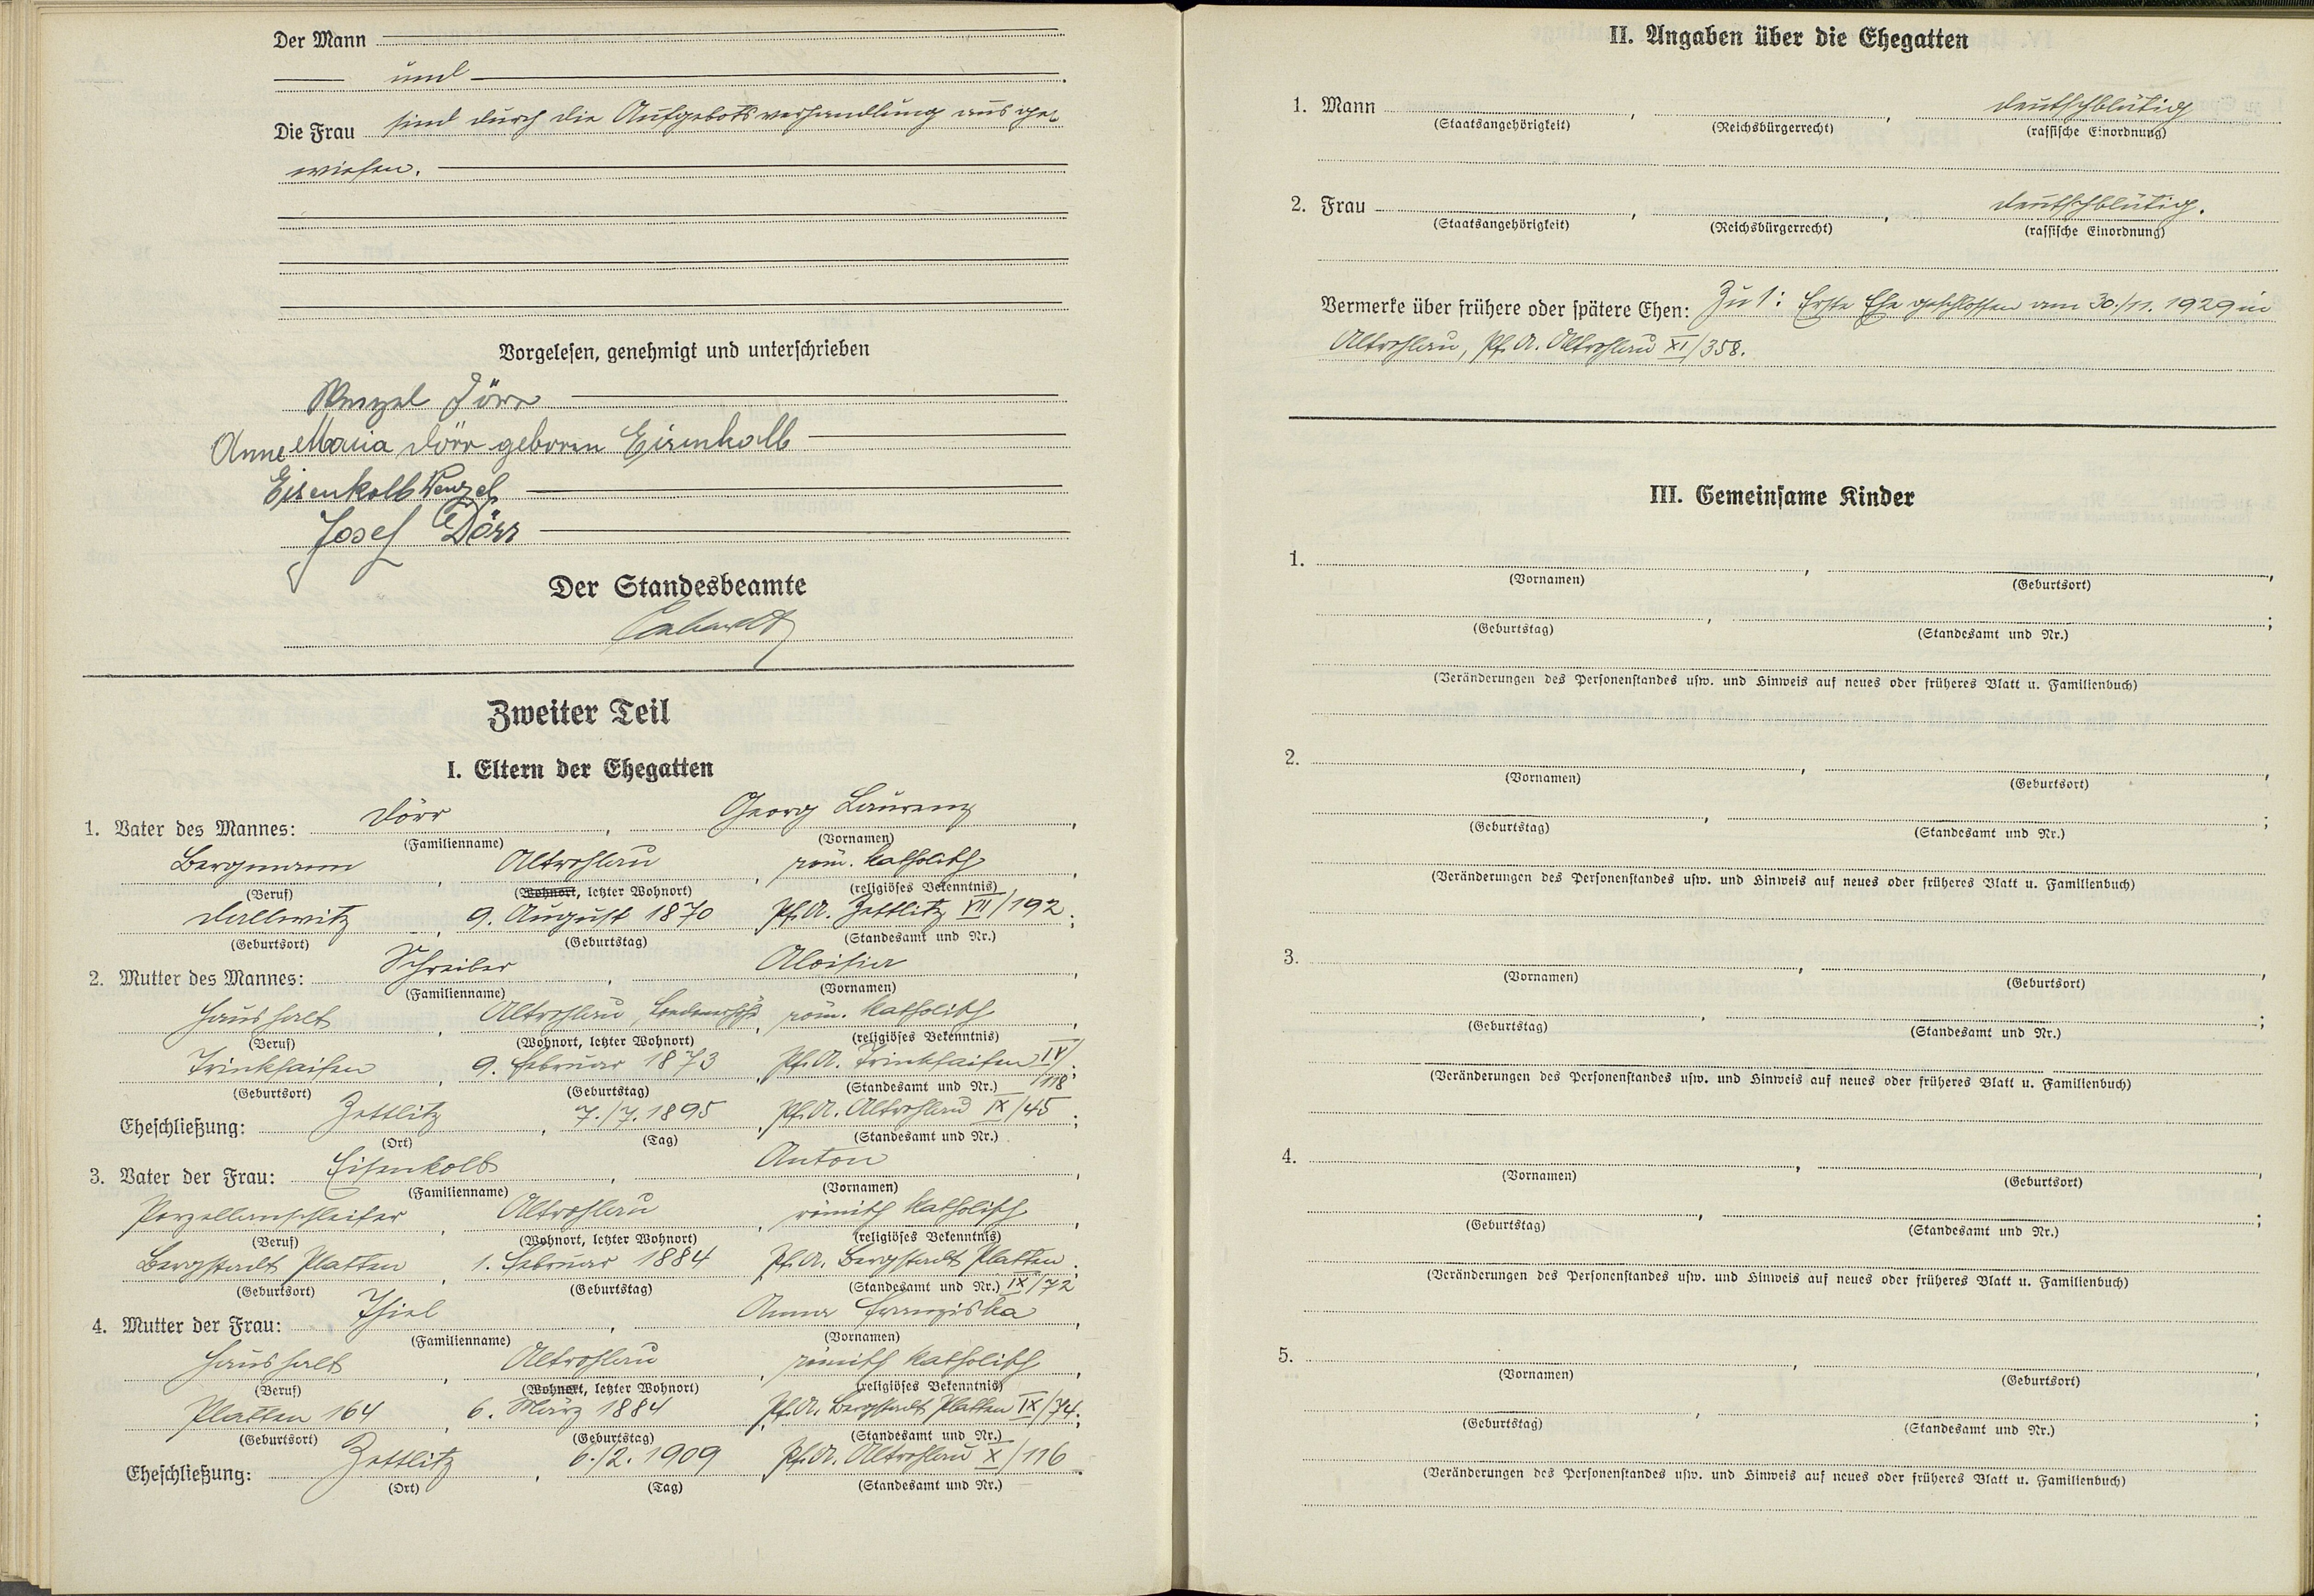 Der Mann
und
Die Frau sind durch die Aufgebotsverhandlung ausge-
wiesen.
Vorgelesen, genehmigt und unterschrieben
Wenzel Dörr
Anne Maria Dörr geboren Eisenkolb
Eisenkolb Wenzel
Josef Dörr
Der Standesbeamte
Zweiter Teil
I. Eltern der Ehegatten
1. Vater des Mannes: Dörr, Georg Laurenz,
(Familienname) (Vornamen)
Bergmann, Altrohlau, röm. katholisch,
(Beruf) (Wohnort, letzter Wohnort) (religiöses Bekenntnis)
Dallwitz, 9. August 1870 Pf.A. Zettlitz VII/192;
(Geburtsort) (Geburtstag) (Standesamt und Nr.)
2. Mutter des Mannes: Schreiber, Aloisia,
(Familienname) (Vornamen)
Haushalt, Altrohlau, röm. katholisch,
(Beruf) (Wohnort, letzter Wohnort) (religiöses Bekenntnis)
Trinksaifen, 9. Februar 1873, Pf.A. Trinksaifen IV/
118;
(Geburtsort) (Geburtstag) (Standesamt und Nr.)
Eheschließung: Zettlitz, 7./7. 1895, Pf.A. Altrohlau IX/45;
(Ort) (Tag) (Standesamt und Nr.)
3. Vater der Frau: Eisenkolb, Anton,
(Familienname) (Vornamen)
Porzellanschleifer, Altrohlau, römisch katholisch,
(Beruf) (Wohnort, letzter Wohnort) (religiöses Bekenntnis)
Bergstadt Platten, 1. Februar 1884 Pf.A. Bergstadt Platten;
(Geburtsort) (Geburtstag) (Standesamt und Nr.) IX/72
4. Mutter der Frau: Thiel, Anna Franziska,
(Familienname) (Vornamen)
Haushalt, Altrohlau, römisch katholisch,
(Beruf) (Wohnort, letzter Wohnort) (religiöses Bekenntnis)
Platten 164, 6. März 1884, Pf.A. Bergstadt Platten IX/74;
(Geburtsort) (Geburtstag) (Standesamt und Nr.)
Eheschließung: Zettlitz, 6./2. 1909 Pf.A. Altrohlau X/116.
(Ort) (Tag) (Standesamt und Nr.)
II. Angaben über die Ehegatten
1. Mann , , deutschblütig
(Staatsangehörigkeit) (Reichsbürgerrecht) (rassische Einordnung)
2. Frau , , deutschblütig.
(Staatsangehörigkeit) (Reichsbürgerrecht) (rassische Einordnung)
Vermerke über frühere oder spätere Ehen: Zu 1: Erste Ehe geschlossen am 30./11. 1929 in
Altrohlau, Pf.A. Altrohlau XI/358.
III. Gemeinsame Kinder
1. , ,
(Vornamen) (Geburtsort)
, ;
(Geburtstag) (Standesamt und Nr.)
(Veränderungen des Personenstandes usw. und Hinweis auf neues oder früheres Blatt u. Familienbuch)
2. , ,
(Vornamen) (Geburtsort)
, ;
(Geburtstag) (Standesamt und Nr.)
(Veränderungen des Personenstandes usw. und Hinweis auf neues oder früheres Blatt u. Familienbuch)
3. , ,
(Vornamen) (Geburtsort)
, ;
(Geburtstag) (Standesamt und Nr.)
(Veränderungen des Personenstandes usw. und Hinweis auf neues oder früheres Blatt u. Familienbuch)
4. , ,
(Vornamen) (Geburtsort)
, ;
(Geburtstag) (Standesamt und Nr.)
(Veränderungen des Personenstandes usw. und Hinweis auf neues oder früheres Blatt u. Familienbuch)
5. , ,
(Vornamen) (Geburtsort)
, ;
(Geburtstag) (Standesamt und Nr.)
(Veränderungen des Personenstandes usw. und Hinweis auf neues oder früheres Blatt u. Familienbuch)